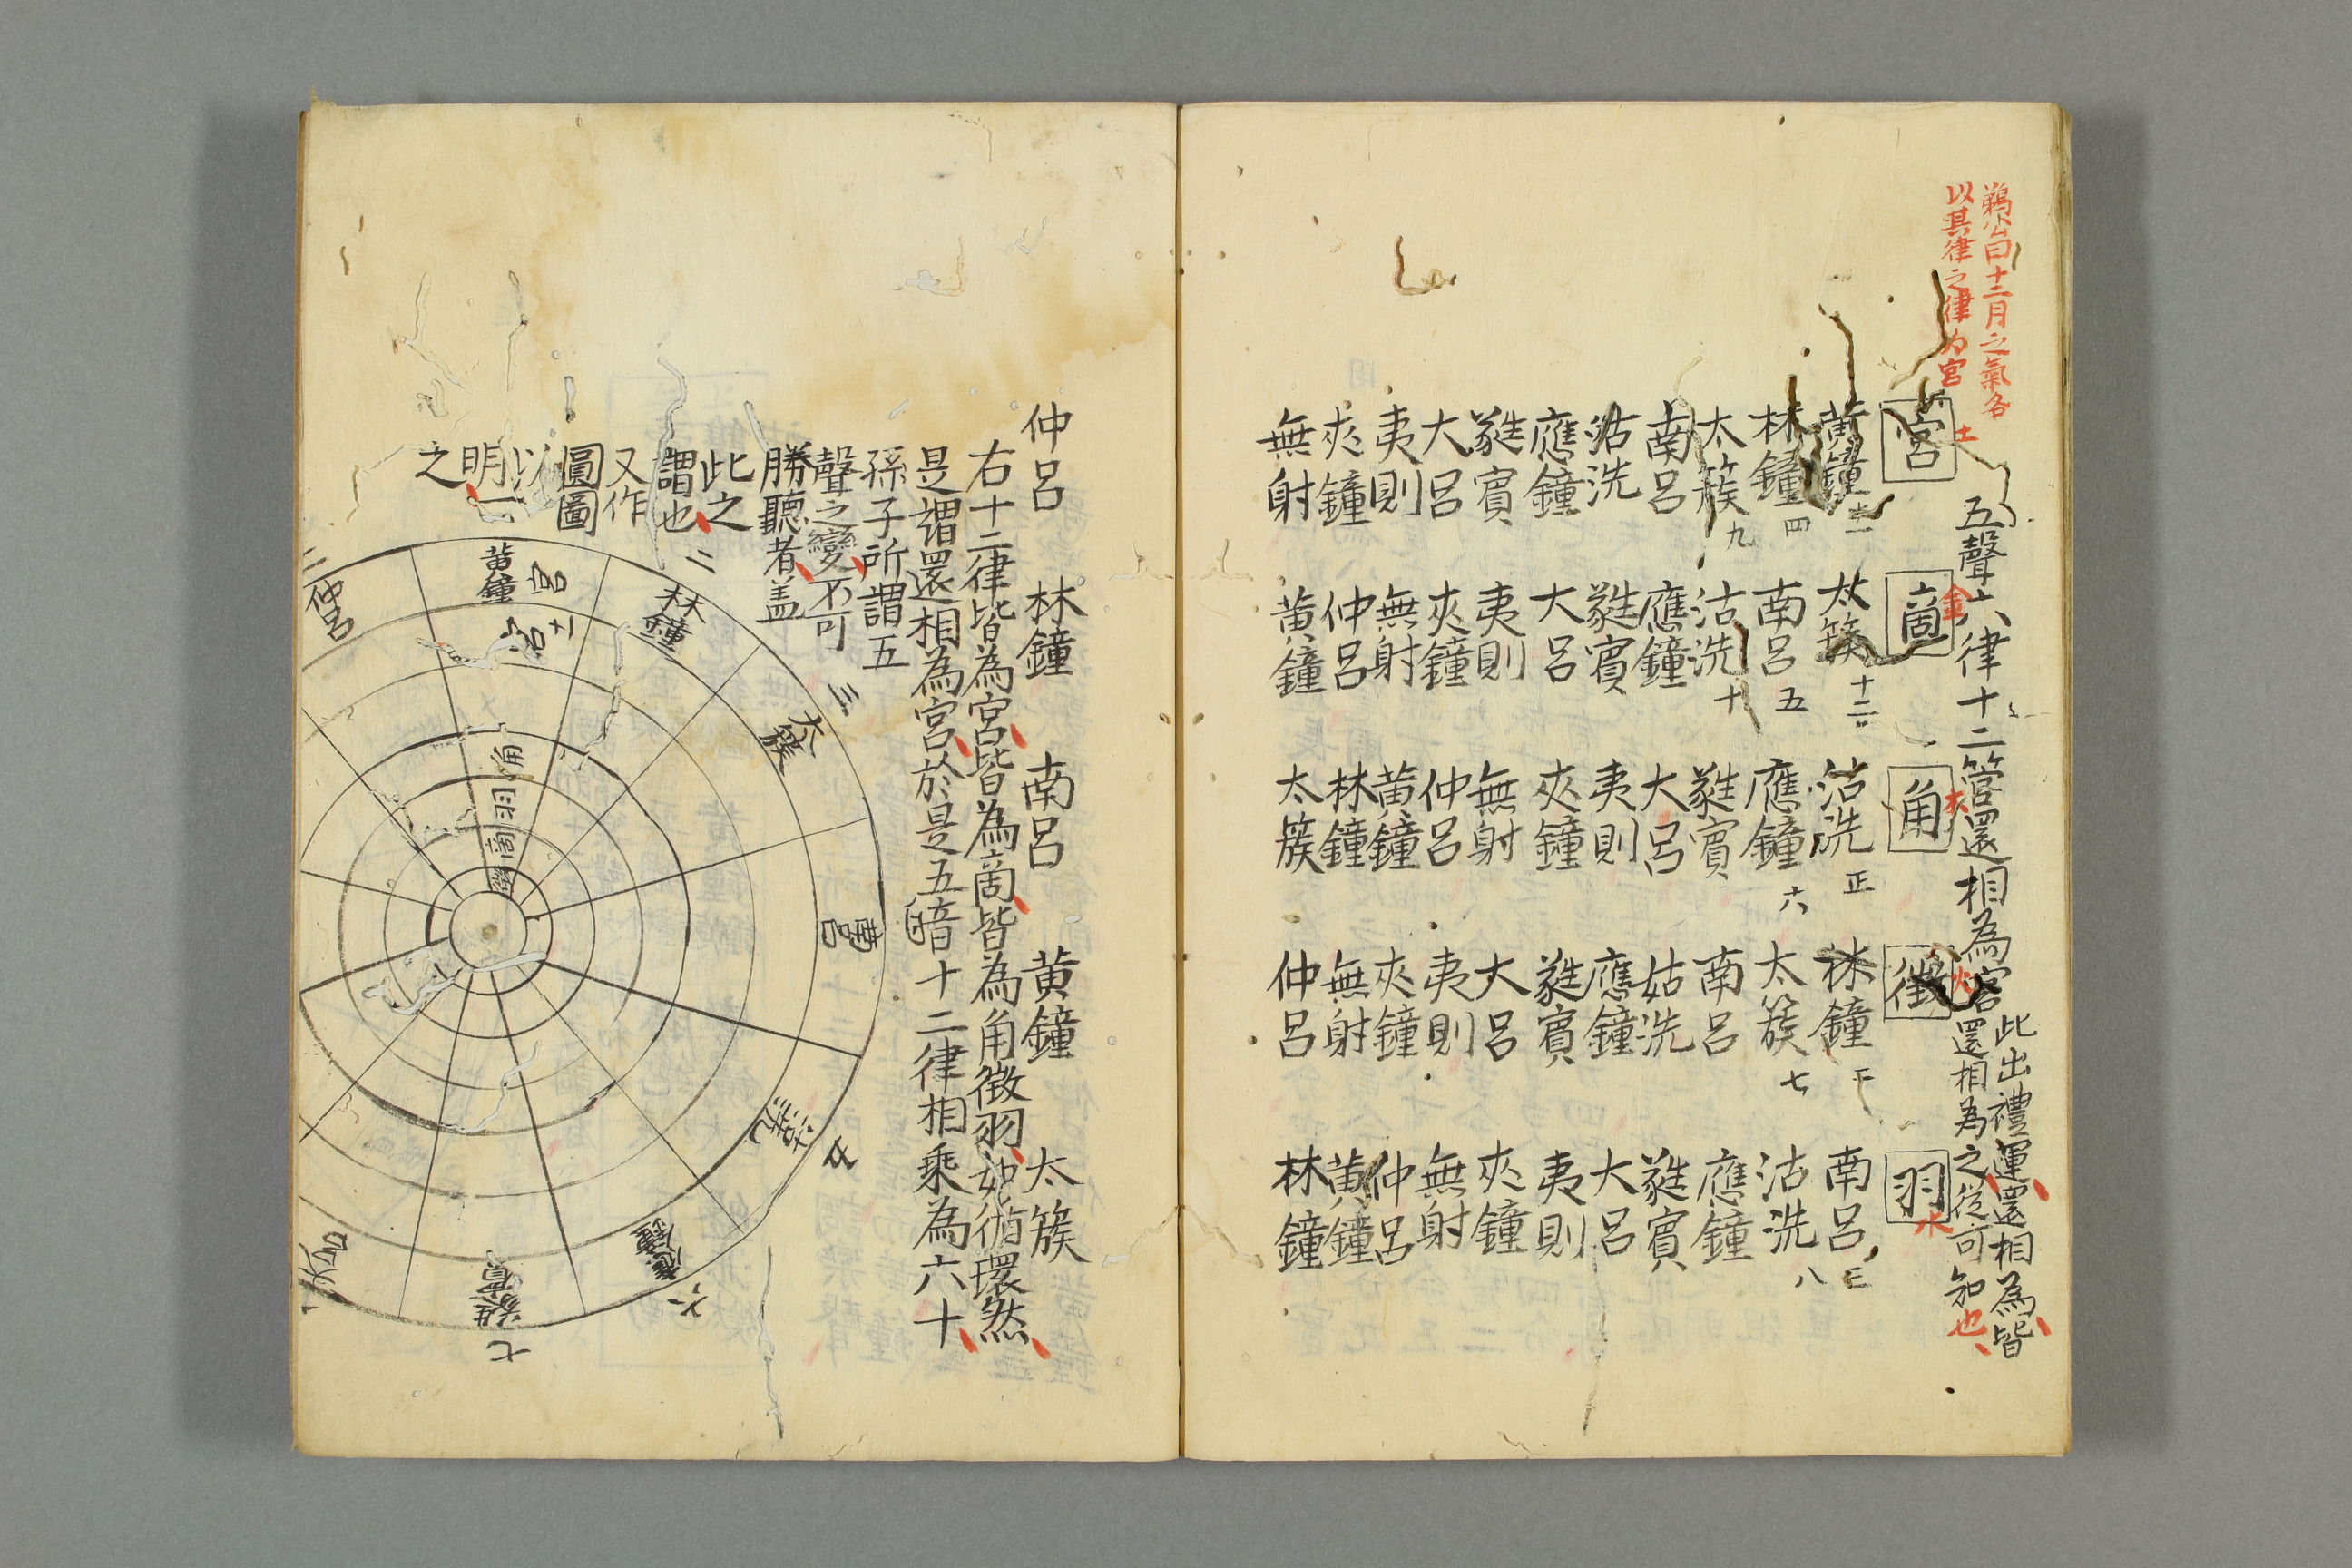 鶴公曰十二月之氣各
以其律之律為宮
五聲六律十二管還相為宮
此出禮運還相為皆
還相為之從可知也
宮 土
啇 金
角 木
徵 火
羽 水
黄鐘 十一 太簇 十二 沽洗 正 林鐘 二 南呂 三
林鐘 四 南呂 五 應鐘 六 太簇 七 沽洗 八
太簇 九 沽洗 十 蕤賔 南呂 應鐘
南呂 應鐘 大呂 姑洗 蕤賔
沽洗 蕤賔 夷則 應鐘 大呂
應鐘 大呂 夾鐘 蕤賔 夷則
蕤賔 夷則 無射 大呂 夾鐘
大呂 夾鐘 仲呂 夷則 無射
夷則 無射 黄鐘 夾鐘 仲呂
夾鐘 仲呂 林鐘 無射 黄鐘
無射 黄鐘 太簇 仲呂 林鐘
仲呂 林鐘 南呂 黄鐘 太簇
右十二律皆為宮皆為啇皆為角徵羽如循環然
是謂還相為宮於是五音十二律相乘為六十
孫子所謂五
聲之變不可
勝聽者盖
此之
謂也
又作
圓圖
以
明
之
黄鐘 宮
宮 土
角
羽
啇
二
林鐘
三
太簇
南呂
沽洗
五
應鐘
六
蕤賔
七
大呂
仲呂